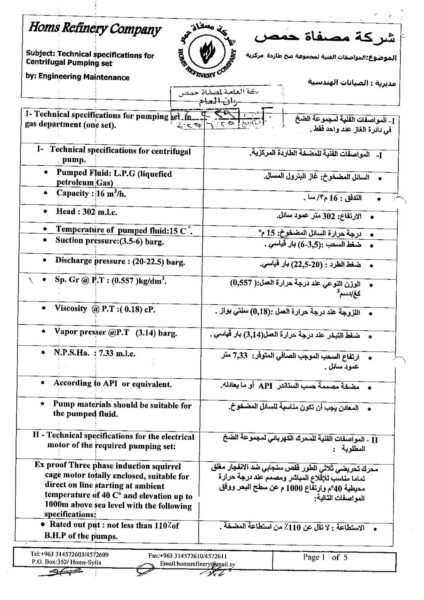 Homs Refinery Company
Subject: Technical specifications for
Centrifugal Pumping set
by: Engineering Maintenance
HOMS REFINERY COMPANY
شركة مصفاة حمص
شركة مصفاة حمص
الموضوع: المواصفات الفنية لمجموعة ضخ طاردة مركزية
مديرية : الصيانات الهندسية
I- Technical specifications for pumping set in
gas department (one set).
I- المواصفات الفنية لمجموعة الضخ
في دائرة الغاز عدد واحد فقط .
I- Technical specifications for centrifugal
pump.
I- المواصفات الفنية للمضخة الطاردة المركزية.
• Pumped Fluid: L.P.G (liquefied
petroleum Gas)
• السائل المضخوخ: غاز البترول المسال.
• Capacity : 16 m³/h.
• التدفق : 16 م٣/ سا .
• Head : 302 m.l.c.
• الارتفاع: 302 متر عمود سائل.
• Temperature of pumped fluid:15 C˚.
• درجة حرارة السائل المضخوخ: 15 م°
• Suction pressure:(3.5-6) barg.
• ضغط السحب :(6-3,5) بار قياسي .
• Discharge pressure : (20-22.5) barg.
• ضغط الطرد : (20-22,5) بار قياسي.
• Sp. Gr @ P.T : (0.557 )kg/dm³.
• الوزن النوعي عند درجة حرارة العمل:( 0,557)
كغ/دسم³
• Viscosity @ P.T :( 0.18) cP.
• اللزوجة عند درجة حرارة العمل :(0,18) سنتي بواز .
• Vapor presser @P.T (3.14) barg.
• ضغط التبخر عند درجة حرارة العمل(3,14) بار قياسي .
• N.P.S.Ha. : 7.33 m.l.c.
• ارتفاع السحب الموجب الصافي المتوفر: 7,33 متر
عمود سائل .
• According to API or equivalent.
• مضخة مصممة حسب الستاندر API أو ما يعادله.
• Pump materials should be suitable for
the pumped fluid.
• المعادن يجب أن تكون مناسبة للسائل المضخوخ.
II - Technical specifications for the electrical
motor of the required pumping set:
II - المواصفات الفنية للمحرك الكهربائي لمجموعة الضخ
المطلوبة :
Ex proof Three phase induction squirrel
cage motor totally enclosed, suitable for
direct on line starting at ambient
temperature of 40 C° and elevation up to
1000m above sea level with the following
specifications:
محرك تحريضي ثلاثي الطور قفص سنجابي ضد الانفجار مغلق
تماما مناسب للإقلاع المباشر ومصمم عند درجة حرارة
محيطية 40م° وارتفاع 1000م عن سطح البحر ووفق
المواصفات التالية:
• Rated out put : not less than 110٪of
B.H.P of the pumps.
• الاستطاعة : لا تقل عن 110٪ من استطاعة المضخة .
Tel:+963 314572603/4572609
P.O. Box:352/ Homs-Syria
Fax:+963 314572610/4572611
Email:homsrefinery@mail.sy
Page 1 of 5